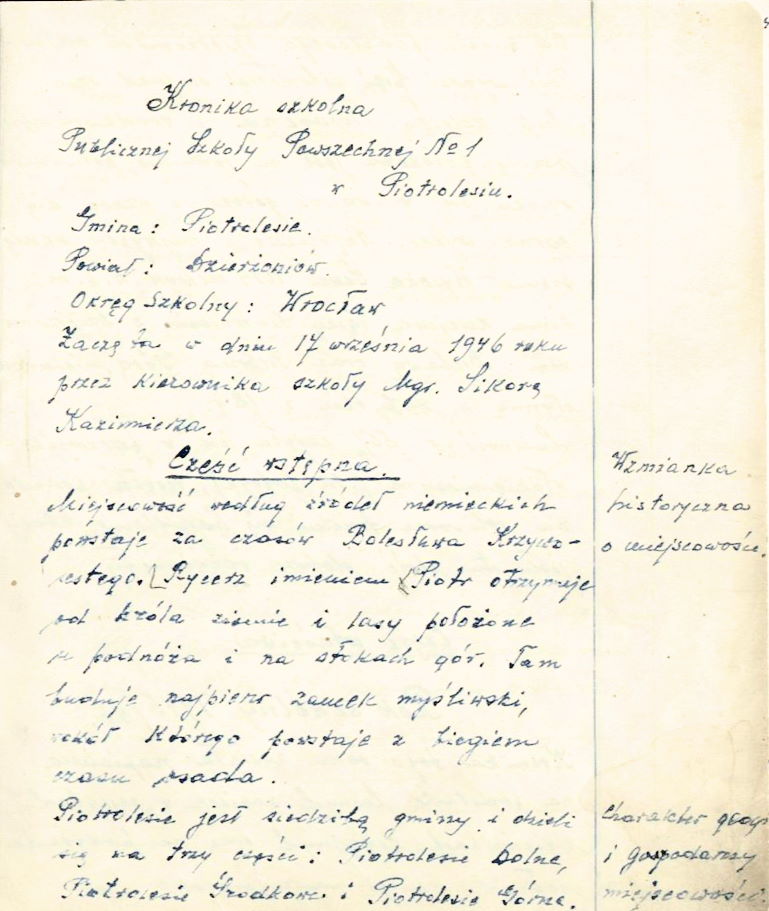 Kronika szkolna
Publicznej Szkoły Powszechnej No 1
w Piotrolesiu.
Gmina: Piotrolesie.
Powiat: Dzierżoniów.
Okręg Szkolny: Wrocław
Zaczęta w dniu 17 września 1946 roku
przez kierownika szkoły Mgr. Sikorę
Kazimierza.
Część wstępna.
Miejscowość według źródeł niemieckich
powstaje za czasów Bolesława Krzywo-
ustego. Rycerz imieniem Piotr otrzymuje
od króla ziemie i lasy położone
u podnóża i na stokach gór. Tam
buduje najpierw zamek myśliwski,
wokół którego powstaje z biegiem
czasu osada.
Piotrolesie jest siedzibą gminy i dzieli
się na trzy części: Piotrolesie Dolne,
Piotrolesie Środkowe i Piotrolesie Górne.
Wzmianka
historyczna
o miejscowości.
Charakter geogr
i gospodarzy
miejscowości.